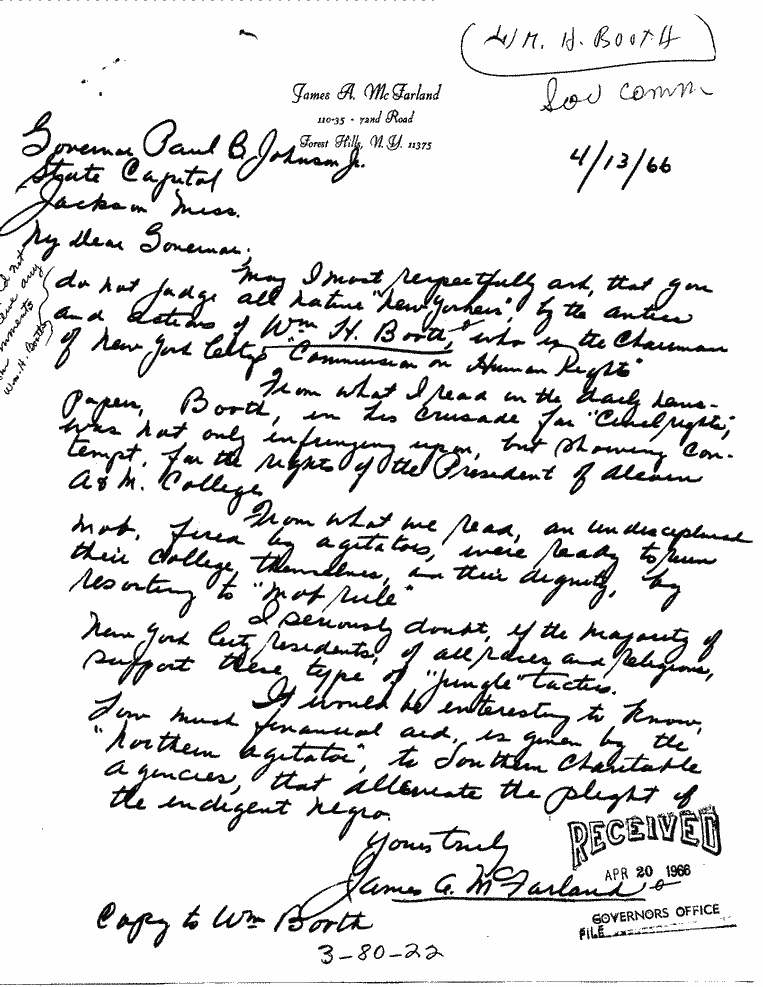 (Wm. H. BOOTH)
Sov Comm
James A. McFarland
110-35 - 72nd Road
Forest Hills, N.Y. 11375
4/13/66
Governor Paul B. Johnson Jr.
State Capitol
Jackson Miss.
My Dear Governor;
May I most respectfully ask, that you
do not judge all native "New Yorkers", by the antics
and actions of Wm H. Booth, who is the Chairman
of New York City's "Commission on Human Rights"
From what I read in the daily news-
papers, Booth, in his crusade for "Civil rights",
was not only infringing upon, but showing con-
tempt, for the rights of the President of Alcorn
A & M. College
From what we read, an undisciplined
mob, fired by agitators, were ready to run
their College, themselves, on their dignity, by
resorting to "mob rule"
I seriously doubt, if the majority of
New York City residents, of all races and religions,
support these type of "jungle" tactics.
It would be interesting to know,
how much financial aid, is given by the
"Northern agitator", to Southern Charitable
agencies, that alleviate the plight of
the indigent negro.
Yours truly
James A. McFarland
Copy to Wm Booth
3-80-22
RECEIVED
APR 20 1966
GOVERNORS OFFICE
FILE
not
any
Wm. H. Booth